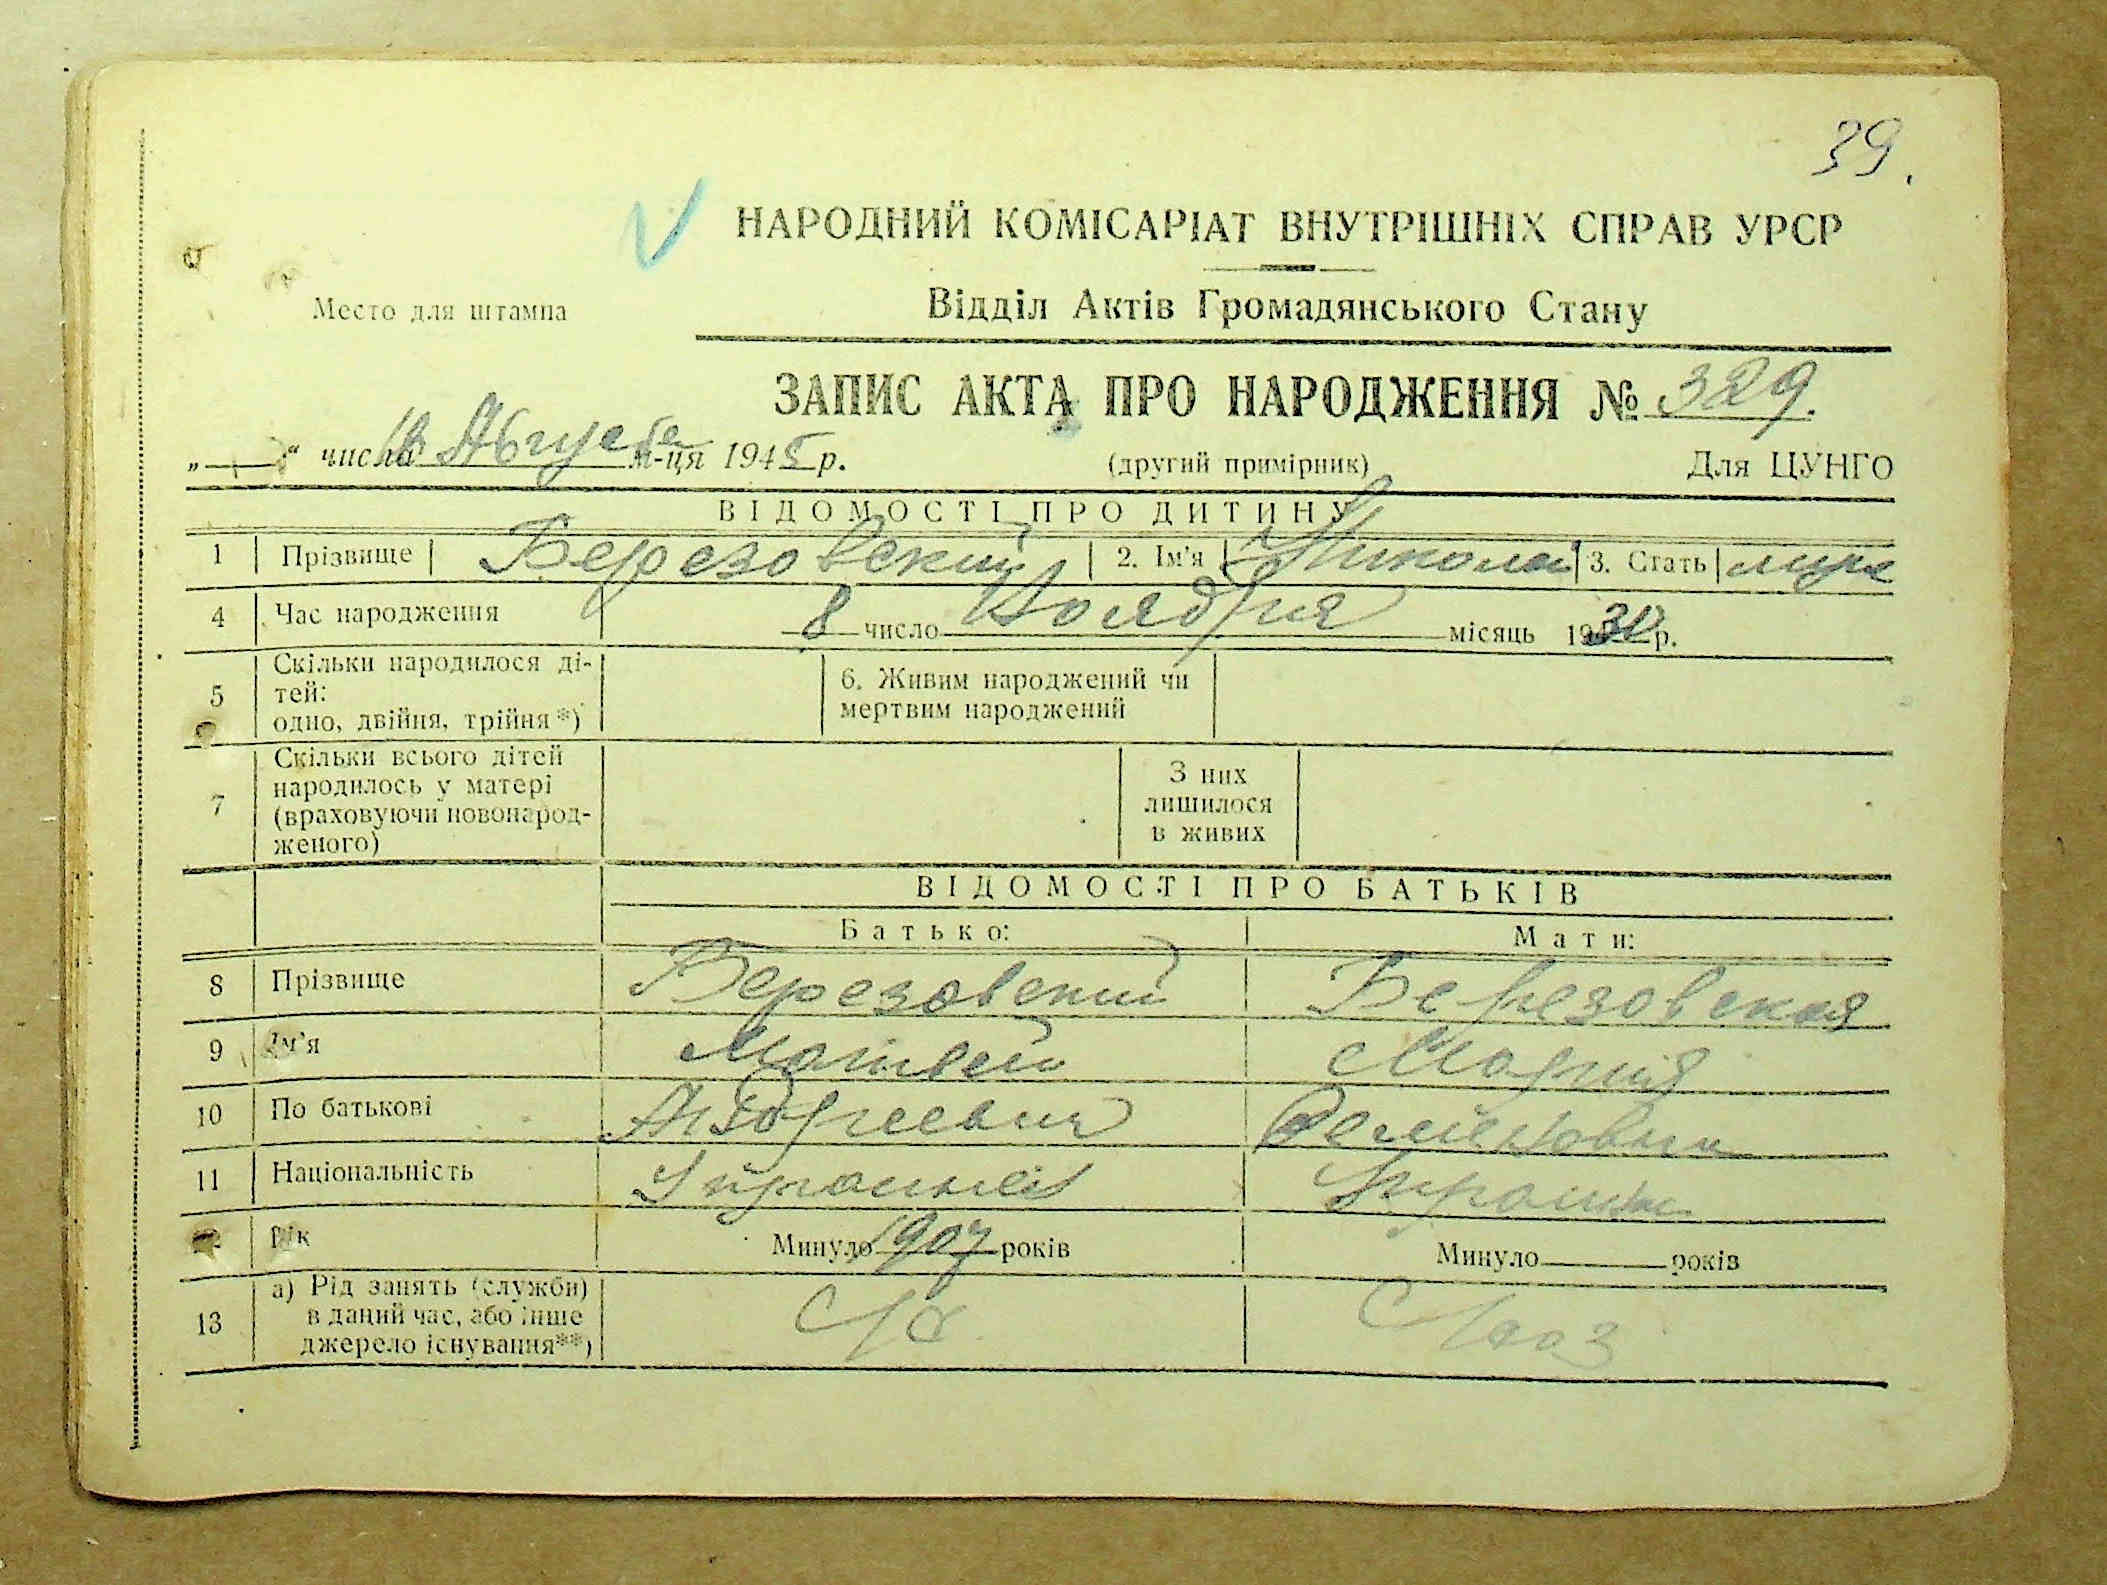 39.
НАРОДНИЙ КОМІСАРІАТ ВНУТРІШНІХ СПРАВ УРСР
Место для штампа
Відділ Актів Громадянського Стану
ЗАПИС АКТА ПРО НАРОДЖЕННЯ № 329.
„ “ числа Августа м-ця 1945 р.
(другий примірник)
Для ЦУНГО
ВІДОМОСТІ ПРО ДИТИНУ
1 Прізвище Березовский 2. Ім'я Николай 3. Стать муж
4 Час народження 8 число Ноября місяць 1930 р.
5 Скільки народилося ді-
тей:
одно, двійня, трійня*)
6. Живим народжений чи
мертвим народжений
7 Скільки всього дітей
народилось у матері
(враховуючи новонарод-
женого)
З них
лишилося
в живих
ВІДОМОСТІ ПРО БАТЬКІВ
Батько: Мати:
8 Прізвище Березовский Березовская
9 Ім'я Матвей Мария
10 По батькові Андреевич
11 Національність
Рік Минуло 1907 років Минуло років
13 а) Рід занять (служби)
в даний час, або інше
джерело існування**)